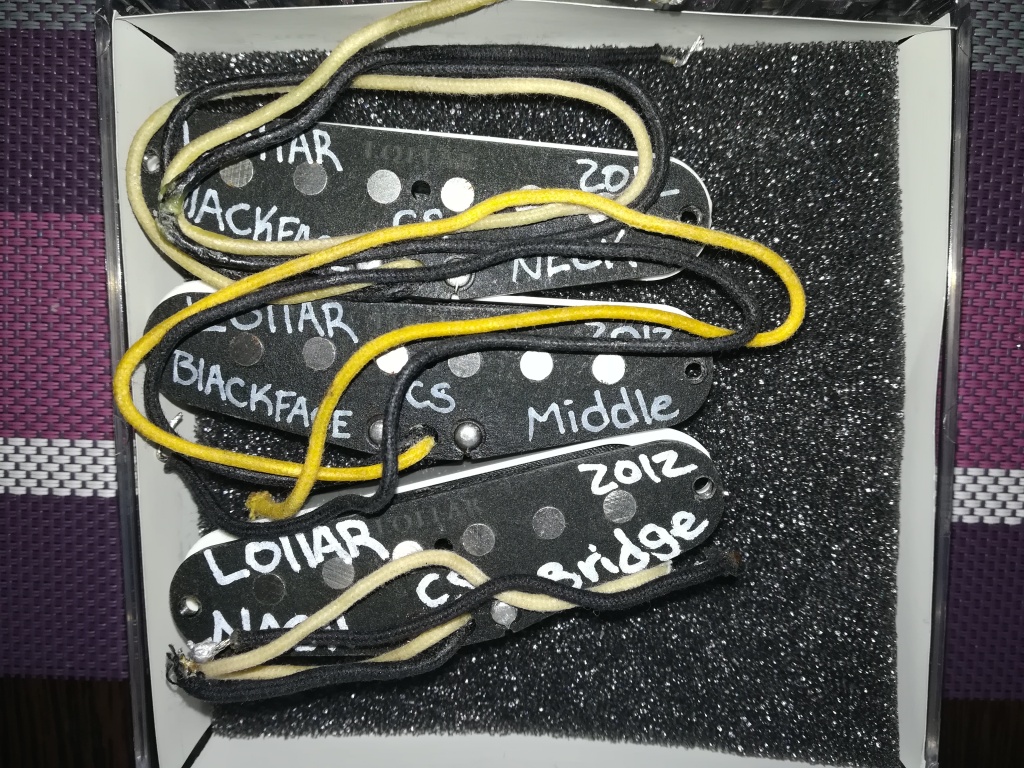 LOllAR
2012
BlACKFACE
CS
NECK
LOllAR
2012
BlACKFACE
CS
Middle
LOllAR
2012
NASH
CS
Bridge